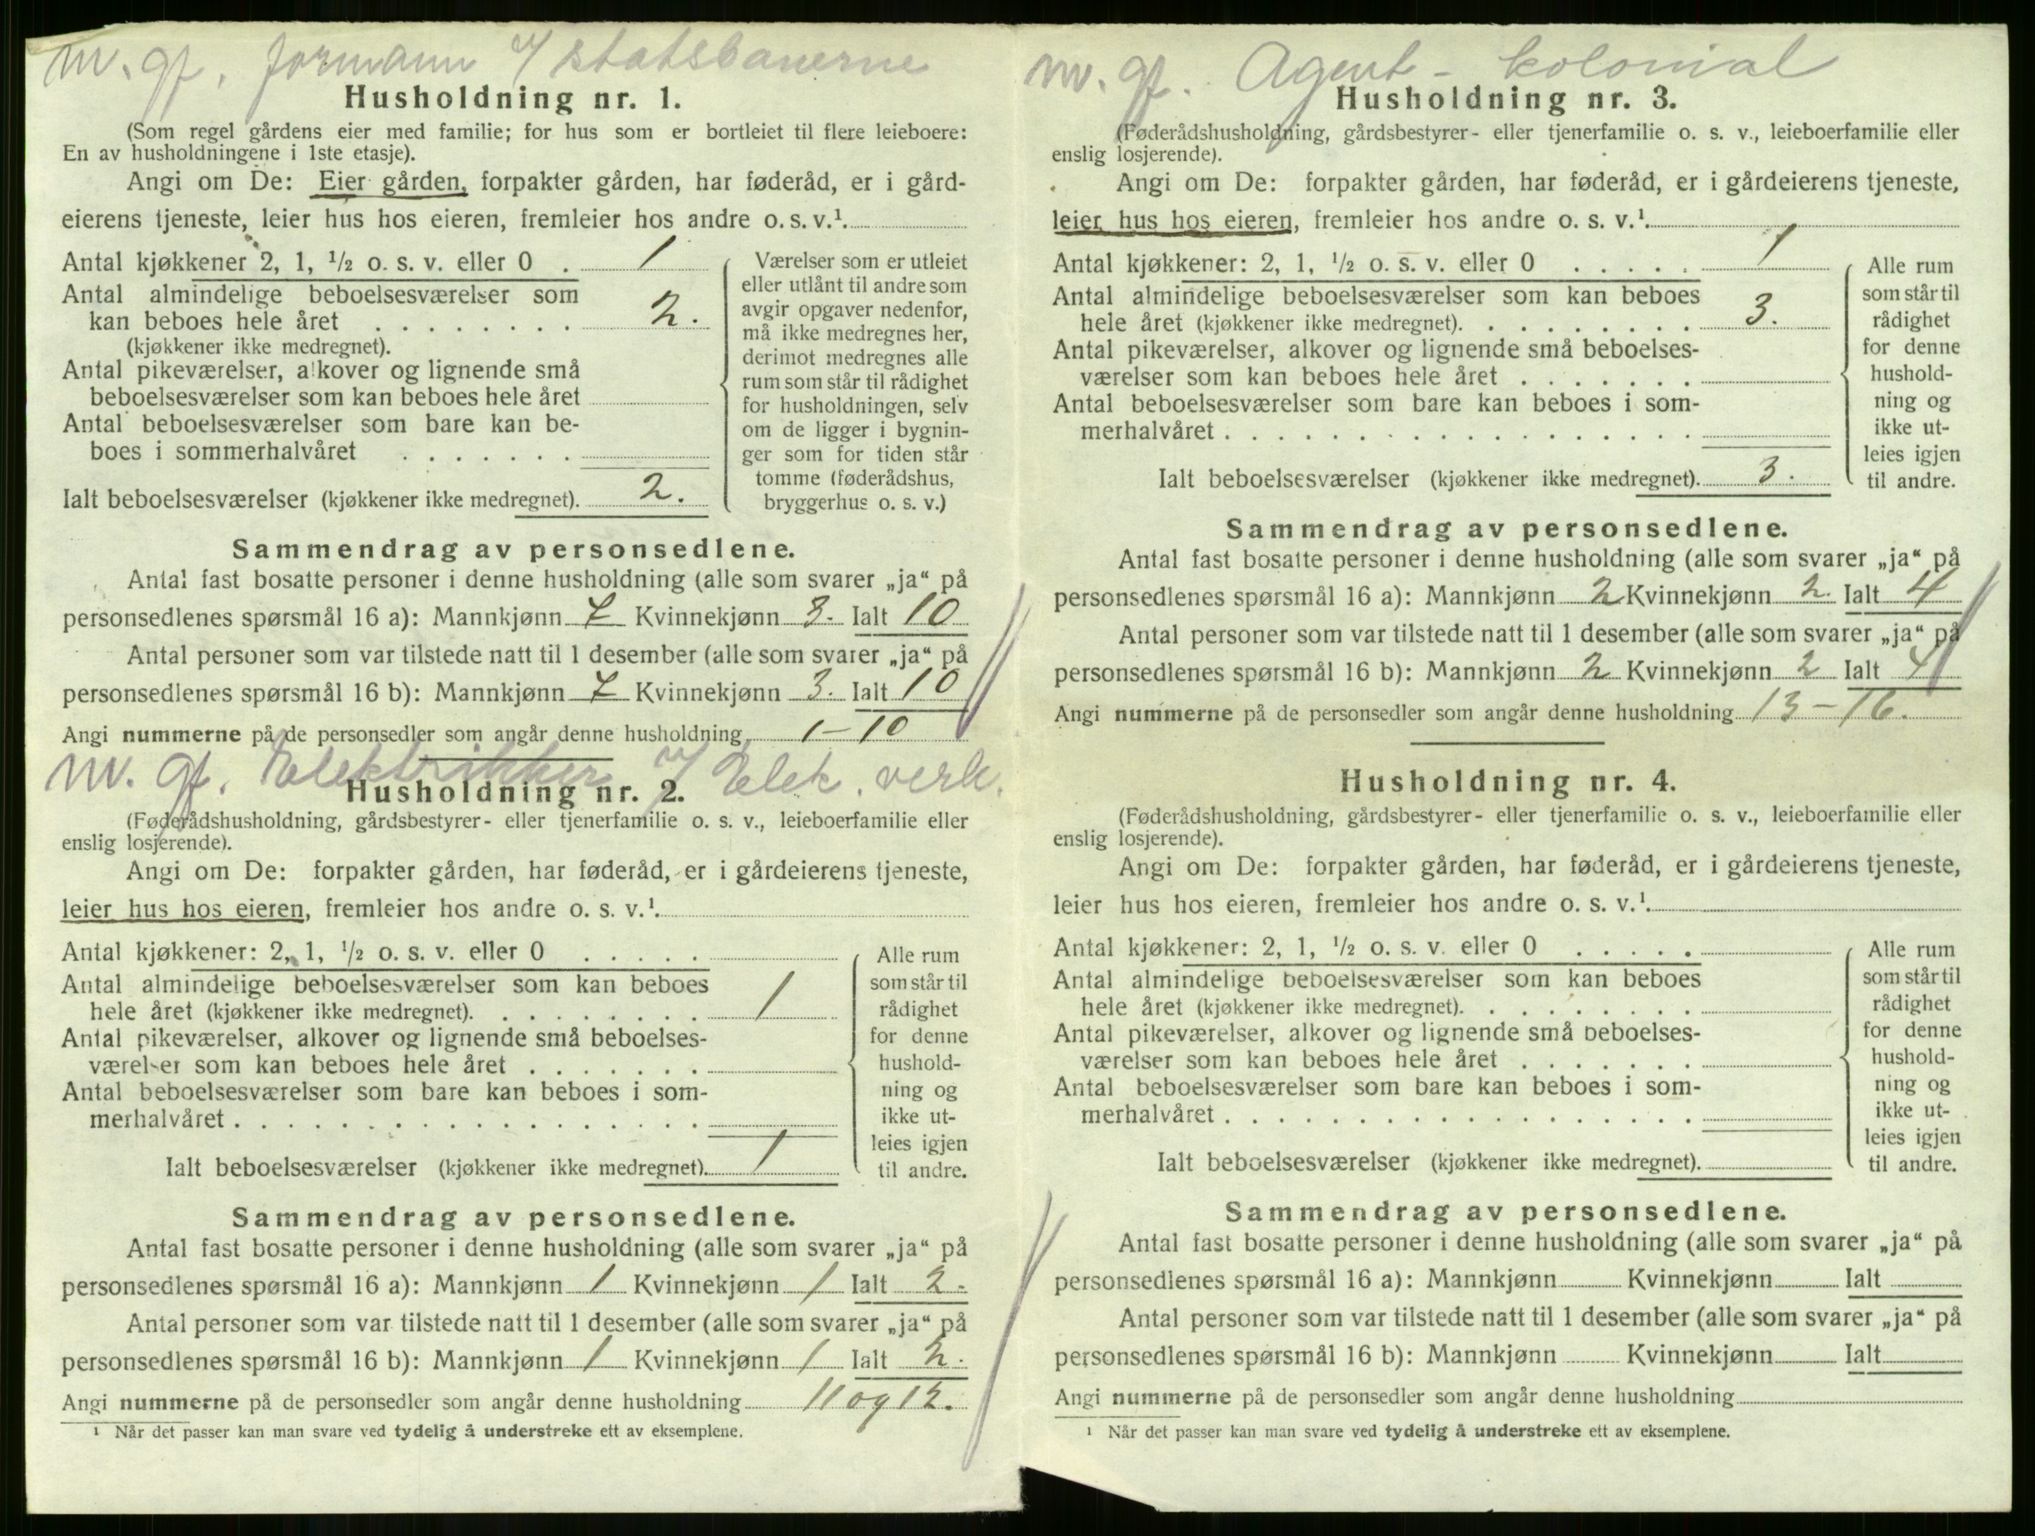 m. gf. formann v/ statsbanerne
Husholdning nr. 1.
(Som regel gårdens eier med familie; for hus som er bortleiet til flere leieboere:
En av husholdningene i 1ste etasje).
Angi om De: Eier gården, forpakter gården, har føderåd, er i gård-
eierens tjeneste, leier hus hos eieren, fremleier hos andre o. s. v.¹
Antal kjøkkener 2, 1, ½ o. s. v. eller 0 . 1
Antal almindelige beboelsesværelser som
kan beboes hele året . . . . . . . . 2.
(kjøkkener ikke medregnet).
Antal pikeværelser, alkover og lignende små
beboelsesværelser som kan beboes hele året
Antal beboelsesværelser som bare kan be-
boes i sommerhalvåret . . . . . . .
Ialt beboelsesværelser (kjøkkener ikke medregnet). 2.
Værelser som er utleiet
eller utlånt til andre som
avgir opgaver nedenfor,
må ikke medregnes her,
derimot medregnes alle
rum som står til rådighet
for husholdningen, selv
om de ligger i bygnin-
ger som for tiden står
tomme (føderådshus,
bryggerhus o. s. v.)
Sammendrag av personsedlene.
Antal fast bosatte personer i denne husholdning (alle som svarer „ja“ på
personsedlenes spørsmål 16 a): Mannkjønn 7 Kvinnekjønn 3. Ialt 10
Antal personer som var tilstede natt til 1 desember (alle som svarer „ja“ på
personsedlenes spørsmål 16 b): Mannkjønn 7 Kvinnekjønn 3. Ialt 10
Angi nummerne på de personsedler som angår denne husholdning 1-10
m. gf. Elektrikker v/ Elek. verk.
Husholdning nr. 2.
(Føderådshusholdning, gårdsbestyrer- eller tjenerfamilie o. s. v., leieboerfamilie eller
enslig losjerende).
Angi om De: forpakter gården, har føderåd, er i gårdeierens tjeneste,
leier hus hos eieren, fremleier hos andre o. s. v.¹
Antal kjøkkener: 2, 1, ½ o. s. v. eller 0 . . . . .
Antal almindelige beboelsesværelser som kan beboes
hele året (kjøkkener ikke medregnet). . . . . . . . . 1
Antal pikeværelser, alkover og lignende små beboelses-
værelser som kan beboes hele året . . . . . . .
Antal beboelsesværelser som bare kan beboes i som-
merhalvåret . . . . . . . . . . . . . . . . .
Ialt beboelsesværelser (kjøkkener ikke medregnet). 1
Alle rum
som står til
rådighet
for denne
hushold-
ning og
ikke ut-
leies igjen
til andre.
Sammendrag av personsedlene.
Antal fast bosatte personer i denne husholdning (alle som svarer „ja“ på
personsedlenes spørsmål 16 a): Mannkjønn 1 Kvinnekjønn 1 Ialt 2.
Antal personer som var tilstede natt til 1 desember (alle som svarer „ja“ på
personsedlenes spørsmål 16 b): Mannkjønn 1 Kvinnekjønn 1 Ialt 2.
Angi nummerne på de personsedler som angår denne husholdning 11 og 12.
¹ Når det passer kan man svare ved tydelig å understreke ett av eksemplene.
m. gf. Agent - kolonial
Husholdning nr. 3.
(Føderådshusholdning, gårdsbestyrer- eller tjenerfamilie o. s. v., leieboerfamilie eller
enslig losjerende).
Angi om De: forpakter gården, har føderåd, er i gårdeierens tjeneste,
leier hus hos eieren, fremleier hos andre o. s. v.¹
Antal kjøkkener: 2, 1, ½ o. s. v. eller 0 . . . . . 1
Antal almindelige beboelsesværelser som kan beboes
hele året (kjøkkener ikke medregnet). . . . . . . . . 3.
Antal pikeværelser, alkover og lignende små beboelses-
værelser som kan beboes hele året . . . . . . .
Antal beboelsesværelser som bare kan beboes i som-
merhalvåret . . . . . . . . . . . . . . . . .
Ialt beboelsesværelser (kjøkkener ikke medregnet). 3.
Alle rum
som står til
rådighet
for denne
hushold-
ning og
ikke ut-
leies igjen
til andre.
Sammendrag av personsedlene.
Antal fast bosatte personer i denne husholdning (alle som svarer „ja“ på
personsedlenes spørsmål 16 a): Mannkjønn 2 Kvinnekjønn 2. Ialt 4
Antal personer som var tilstede natt til 1 desember (alle som svarer „ja“ på
personsedlenes spørsmål 16 b): Mannkjønn 2 Kvinnekjønn 2 Ialt 4
Angi nummerne på de personsedler som angår denne husholdning 13-16.
Husholdning nr. 4.
(Føderådshusholdning, gårdsbestyrer- eller tjenerfamilie o. s. v., leieboerfamilie eller
enslig losjerende).
Angi om De: forpakter gården, har føderåd, er i gårdeierens tjeneste,
leier hus hos eieren, fremleier hos andre o. s. v.¹
Antal kjøkkener: 2, 1, ½ o. s. v. eller 0 . . . . .
Antal almindelige beboelsesværelser som kan beboes
hele året (kjøkkener ikke medregnet). . . . . . . . .
Antal pikeværelser, alkover og lignende små beboelses-
værelser som kan beboes hele året . . . . . . .
Antal beboelsesværelser som bare kan beboes i som-
merhalvåret . . . . . . . . . . . . . . . . .
Ialt beboelsesværelser (kjøkkener ikke medregnet).
Alle rum
som står til
rådighet
for denne
hushold-
ning og
ikke ut-
leies igjen
til andre.
Sammendrag av personsedlene.
Antal fast bosatte personer i denne husholdning (alle som svarer „ja“ på
personsedlenes spørsmål 16 a): Mannkjønn Kvinnekjønn Ialt
Antal personer som var tilstede natt til 1 desember (alle som svarer „ja“ på
personsedlenes spørsmål 16 b): Mannkjønn Kvinnekjønn Ialt
Angi nummerne på de personsedler som angår denne husholdning
¹ Når det passer kan man svare ved tydelig å understreke ett av eksemplene.